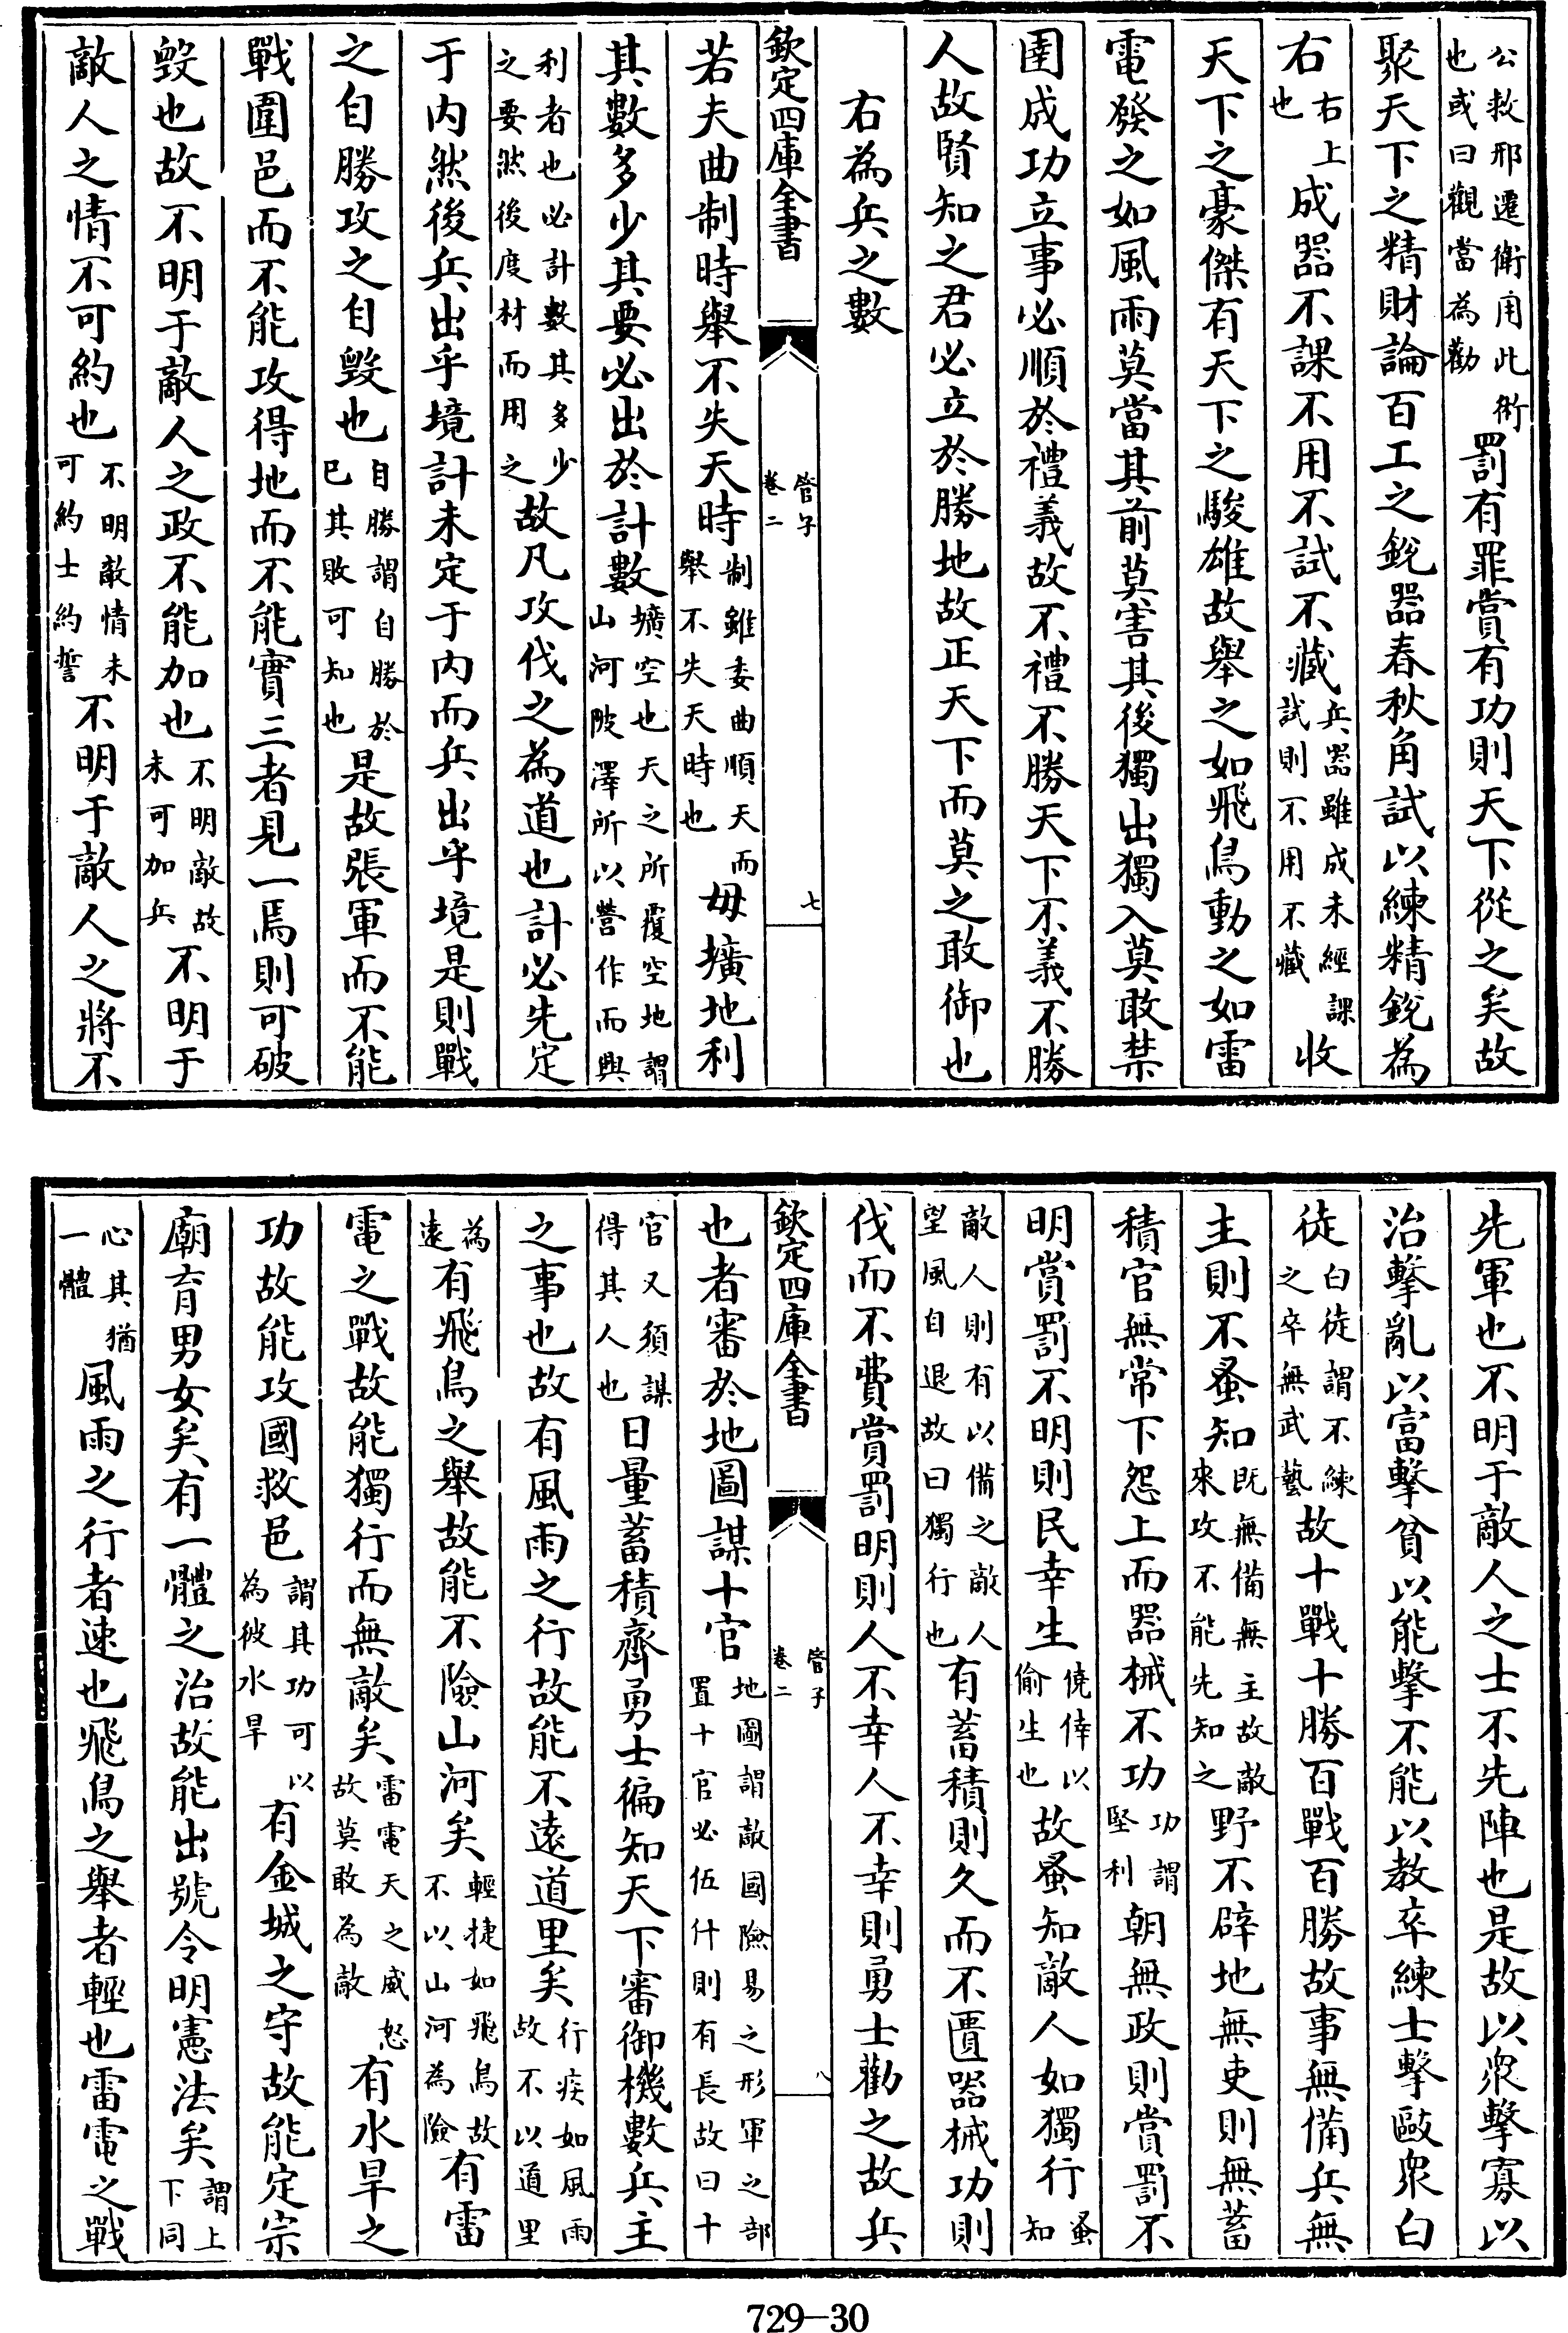 公救邢遷衛用此術也或曰觀當為勸罰有罪賞有功則天下從之矣故
聚天下之精財論百工之銳器春秋角試以練精銳為
右右上也成器不課不用不試不藏兵器雖成未經課試則不用不藏收
天下之豪傑有天下之駿雄故舉之如飛鳥動之如雷
電發之如風雨莫當其前莫害其後獨出獨入莫敢禁
圉成功立事必順於禮義故不禮不勝天下不義不勝
人故賢知之君必立於勝地故正天下而莫之敢御也
右為兵之數
欽定四庫全書 管子 卷二 七
若夫曲制時舉不失天時制雖委曲順天而舉不失天時也毋壙地利
其數多少其要必出於計數壙空也天之所覆空地謂山河陂澤所以營作而興
利者也必計數其多少之要然後度材而用之故凡攻伐之為道也計必先定
于內然後兵出乎境計未定于內而兵出乎境是則戰
之自勝攻之自毀也自勝謂自勝於已其敗可知也是故張軍而不能
戰圍邑而不能攻得地而不能實三者見一焉則可破
毀也故不明于敵人之政不能加也不明敵故未可加兵不明于
敵人之情不可約也不明敵情未可約士約誓不明于敵人之將不
先軍也不明于敵人之士不先陣也是故以衆擊寡以
治擊亂以富擊貧以能擊不能以教卒練士擊敺衆白
徒白徒謂不練之卒無武藝故十戰十勝百戰百勝故事無備兵無
主則不蚤知既無備無主故敵來攻不能先知之野不辟地無吏則無蓄
積官無常下怨上而器械不功功謂堅利朝無政則賞罰不
明賞罰不明則民幸生僥倖以偷生也故蚤知敵人如獨行蚤知
敵人則有以備之敵人望風自退故曰獨行也有蓄積則久而不匱器械功則
伐而不費賞罰明則人不幸人不幸則勇士勸之故兵
欽定四庫全書 管子 卷二 八
也者審於地圖謀十官地圖謂敵國險易之形軍之部置十官必伍什則有長故曰十
官又須謀得其人也日量蓄積齊勇士徧知天下審御機數兵主
之事也故有風雨之行故能不遠道里矣行疾如風雨故不以道里
為遠有飛鳥之舉故能不險山河矣輕捷如飛鳥故不以山河為險有雷
電之戰故能獨行而無敵矣雷電天之威怒故莫敢為敵有水旱之
功故能攻國救邑謂其功可以為彼水旱有金城之守故能定宗
廟育男女矣有一體之治故能出號令明憲法矣謂上下同
心其猶一體風雨之行者速也飛鳥之舉者輕也雷電之戰
729—30